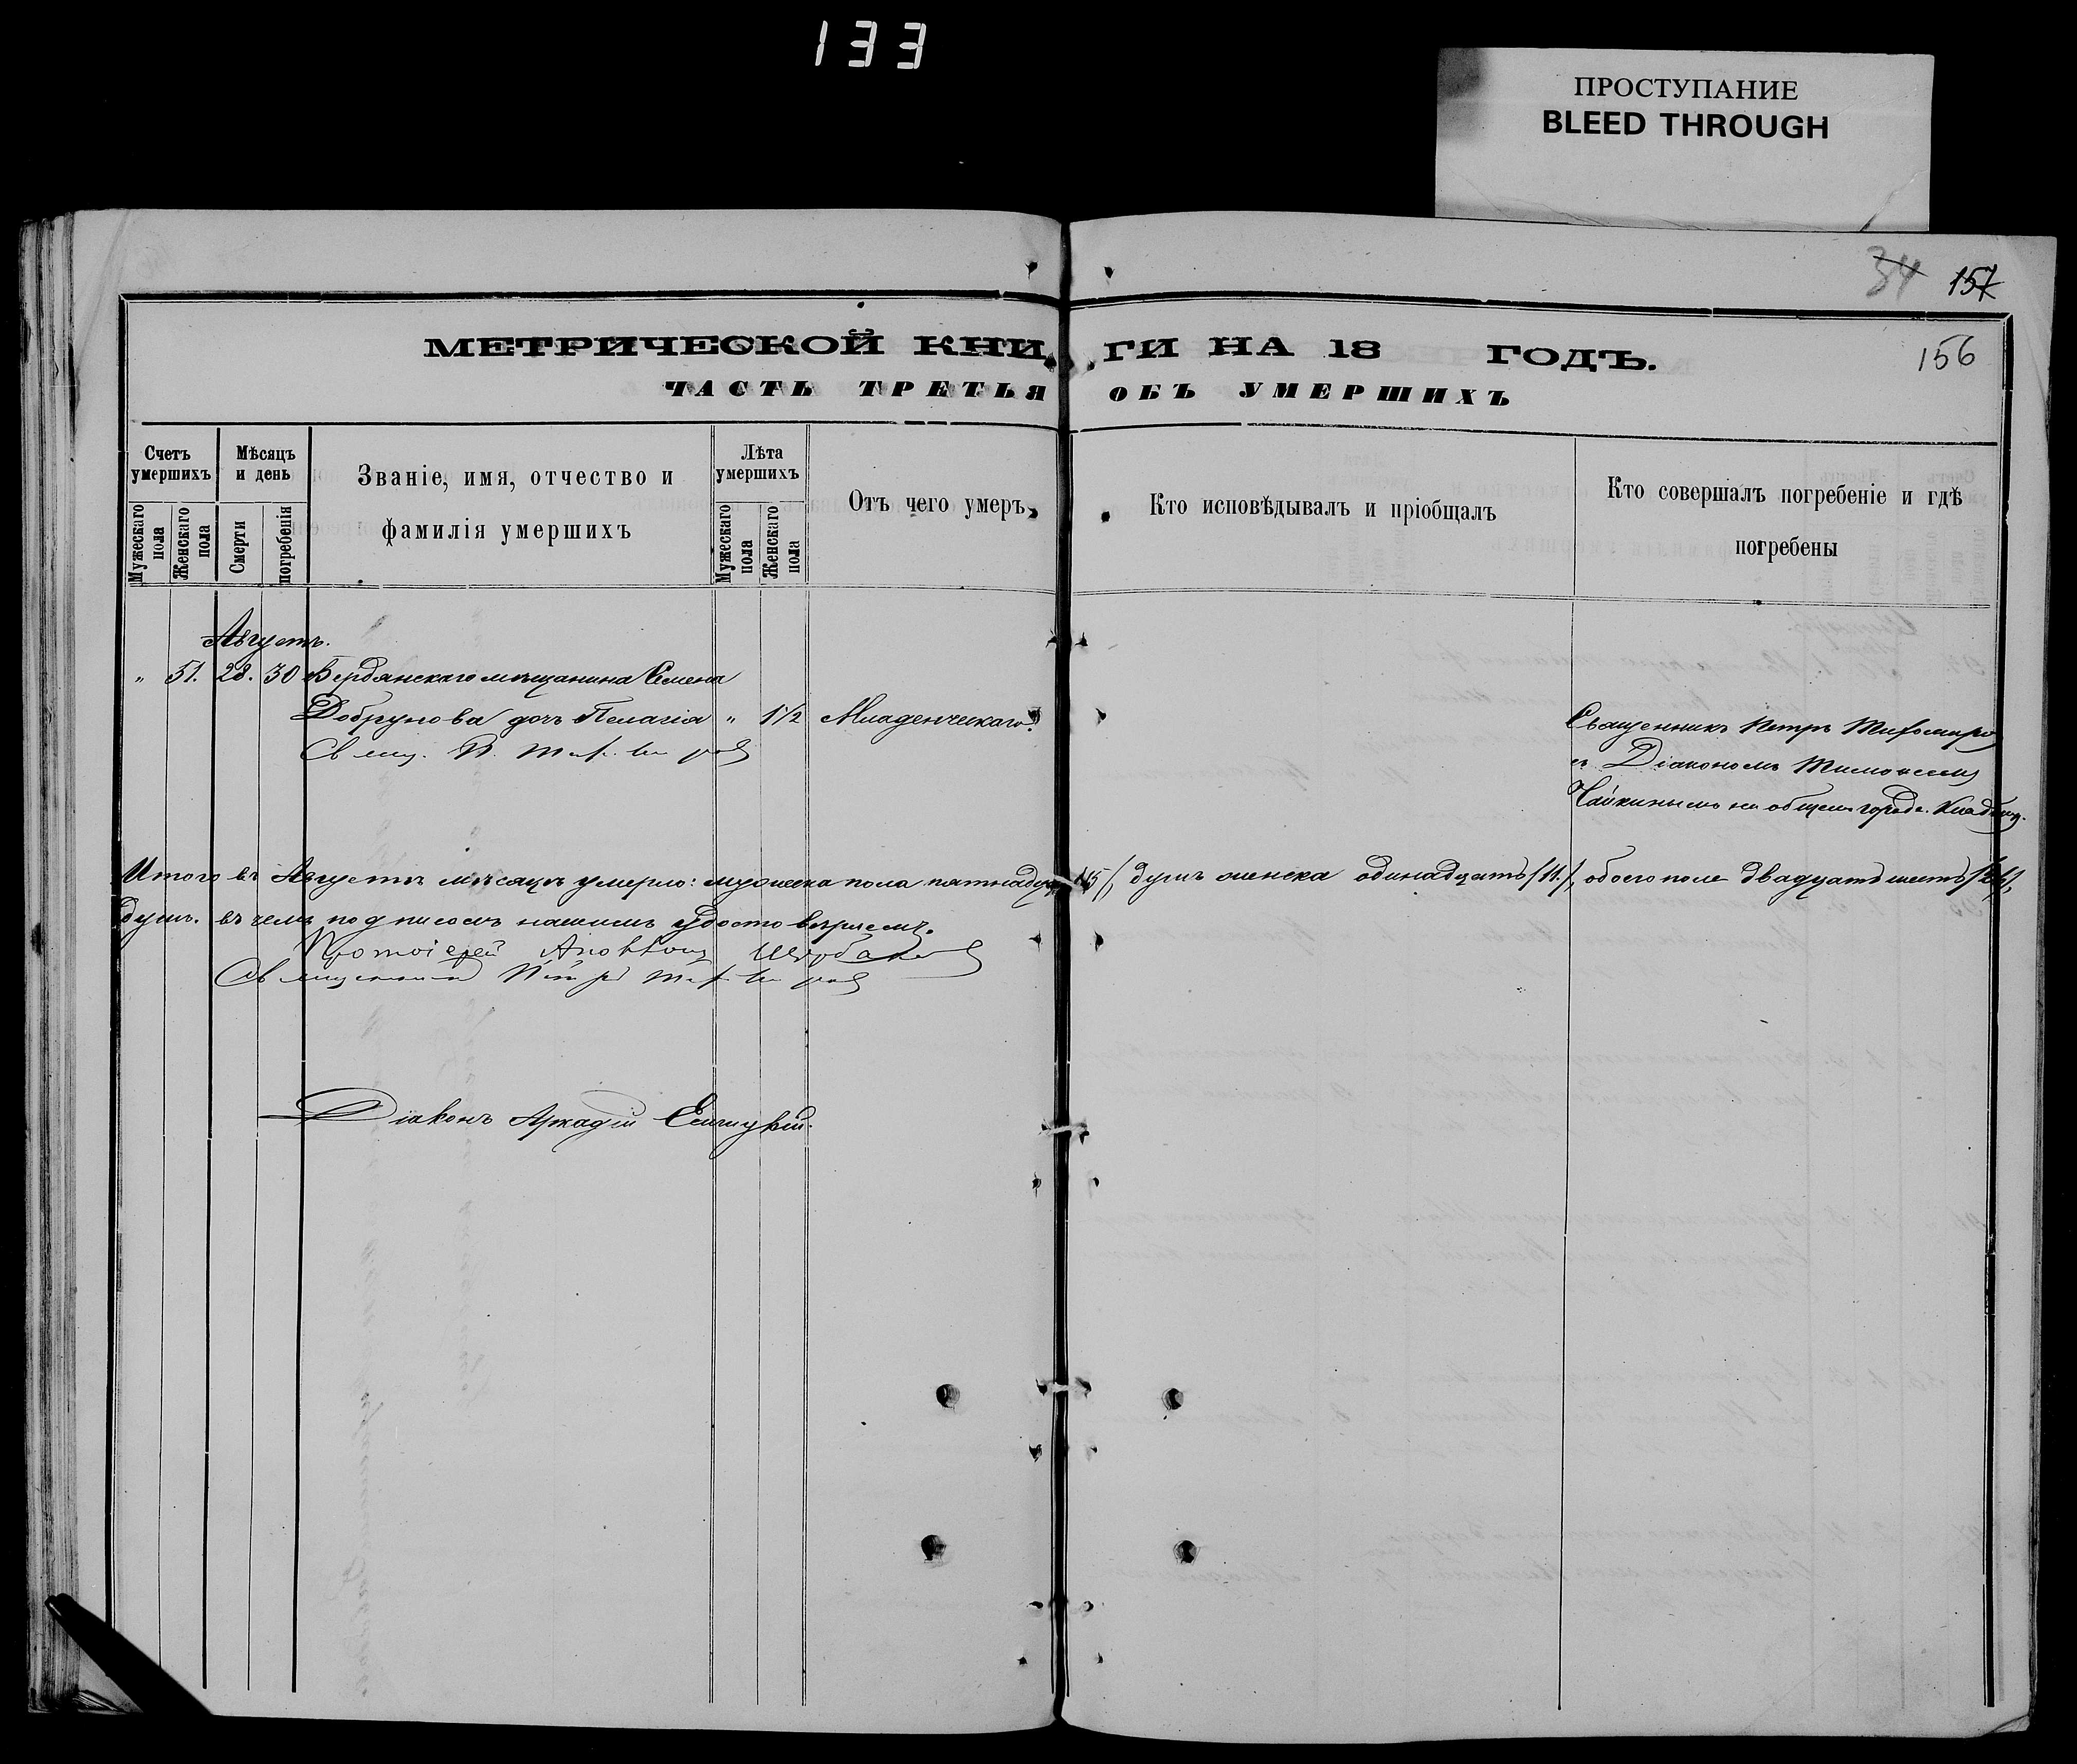 133
ПРОСТУПАНИЕ
BLEED THROUGH
34 157
156
МЕТРИЧЕСКОЙ КНИГИ НА 18 ГОДЪ.
ЧАСТЬ ТРЕТЬЯ ОБЪ УМЕРШИХЪ
Счетъ умершихъ
Мужескаго пола
Женскаго пола
Мѣсяцъ и день
Смерти
погребенія
Званіе, имя, отчество и
фамилія умершихъ
Лѣта умершихъ
Мужескаго пола
Женскаго пола
Отъ чего умеръ
Кто исповѣдывалъ и пріобщалъ
Кто совершалъ погребеніе и гдѣ
погребены
Августъ.
" 51. 28. 30 Бердянскаго мѣщанина Семена
Добрунова дочь Пелагія " 1 1/2 Младенческаго.
Свящ. П. Тихомировъ
Священникъ Петръ Тихомиро
съ Діакономъ
Чайкинымъ на общем городс. кладбищ.
Итого въ Августѣ мѣсяцѣ умерло: мужеска пола пятнадцать /15/, душъ женска одинадцать /11./, обоего пола двадцать шесть /26/,
душъ. въ чемъ подписомъ нашимъ удостовѣряемъ.
Протоіерей
Священникъ Петръ Тихомировъ
Діаконъ Аркадій